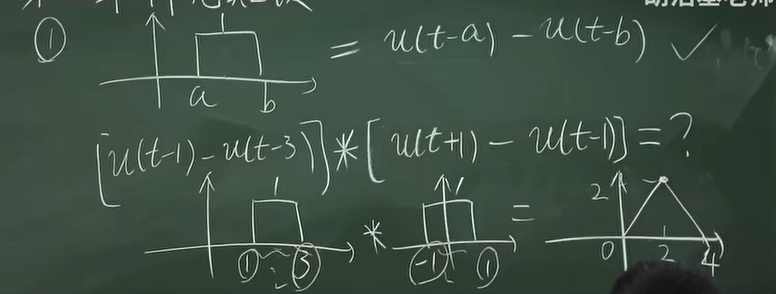 胡浩基老师
① 1 a b = u(t-a) - u(t-b) ✓
[u(t-1) - u(t-3)] * [u(t+1) - u(t-1)] = ?
1 ① ③ * 1 -1 ① = 2 0 2 4